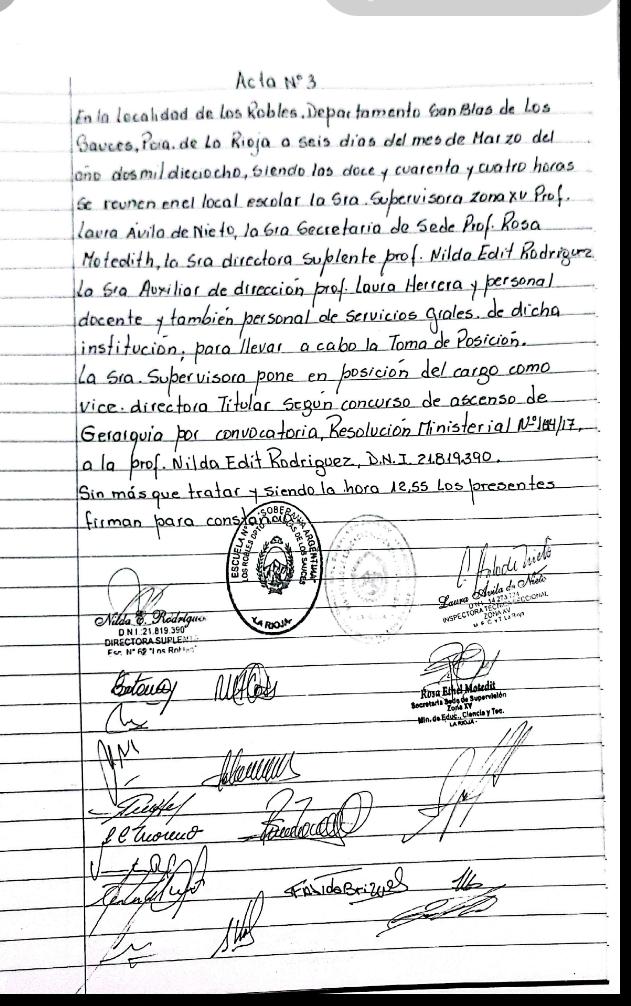 Acta N° 3
En la localidad de Los Robles, Departamento San Blas de Los
Sauces, Pcia. de La Rioja a seis días del mes de Marzo del
año dos mil dieciocho, siendo las doce y cuarenta y cuatro horas
se reunen en el local escolar la Sra. Supervisora Zona XV Prof.
Laura Ávila de Nieto, la Sra Secretaria de Sede Prof. Rosa
Motedith, la Sra directora suplente prof. Nilda Edit Rodriguez
La Sra Auxiliar de dirección prof. Laura Herrera y personal
docente y también personal de servicios grales. de dicha
institución, para llevar a cabo la Toma de Posición.
La Sra. Supervisora pone en posición del cargo como
vice-directora Titular según concurso de ascenso de
Gerarquia por convocatoria, Resolución Ministerial N° 184/17,
a la prof. Nilda Edit Rodriguez, D.N.I. 21.819.390.
Sin más que tratar y siendo la hora 12,55 Los presentes
firman para constancia
ESCUELA N° "SOBERANIA ARGENTINA"
LOS ROBLES DPTO. BLAS DE LOS SAUCES
LA RIOJA
Nilda E. Rodriguez
D.N.I. 21.819.390
DIRECTORA SUPLENTE
Esc. N° 62 "Los Robles"
Laura Ávila de Nieto
INSPECTORA TÉCNICA SECCIONAL
ZONA XV
Rosa Ethel Motedit
Secretaria Sede de Supervisión
Zona XV
Min. de Educ., Ciencia y Tec.
LA RIOJA